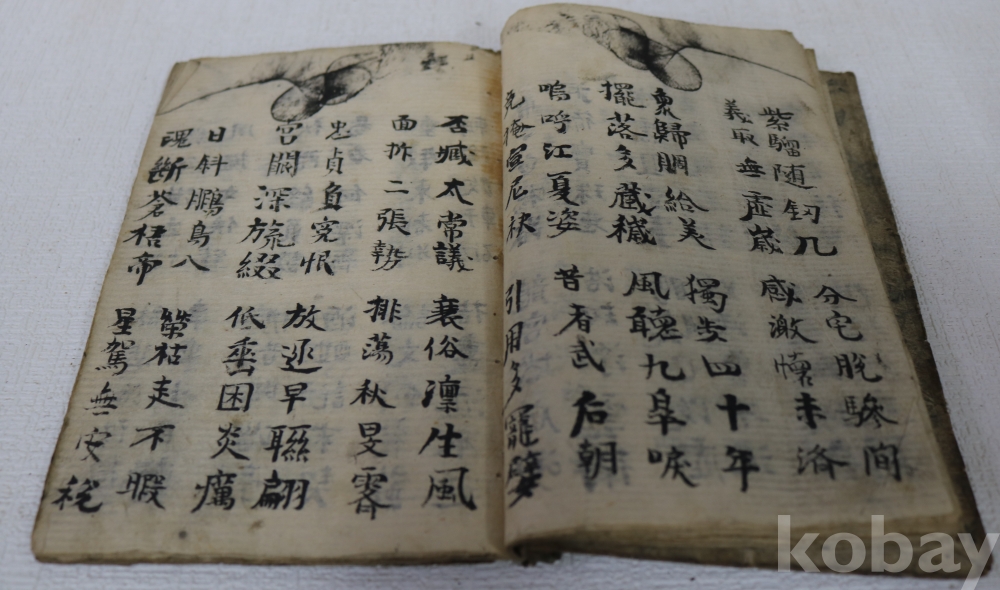 紫騮随釰几
義取無虛歲
分宅脫驂間
感激懷未済
衆歸賙給美
擺落多藏穢
獨步四十年
風聽九皐唳
嗚呼江夏姿
掩宣尼袂
昔者武后朝
引用多寵嬖
否臧太常議
面折二張勢
衰俗凛生風
排蕩秋旻霽
忠貞負寃恨
宮闕深旒綴
放逐早聯翩
低垂困炎癘
日斜鵬鳥入
魂斷蒼梧帝
榮枯走不暇
星駕無安稅
kobay